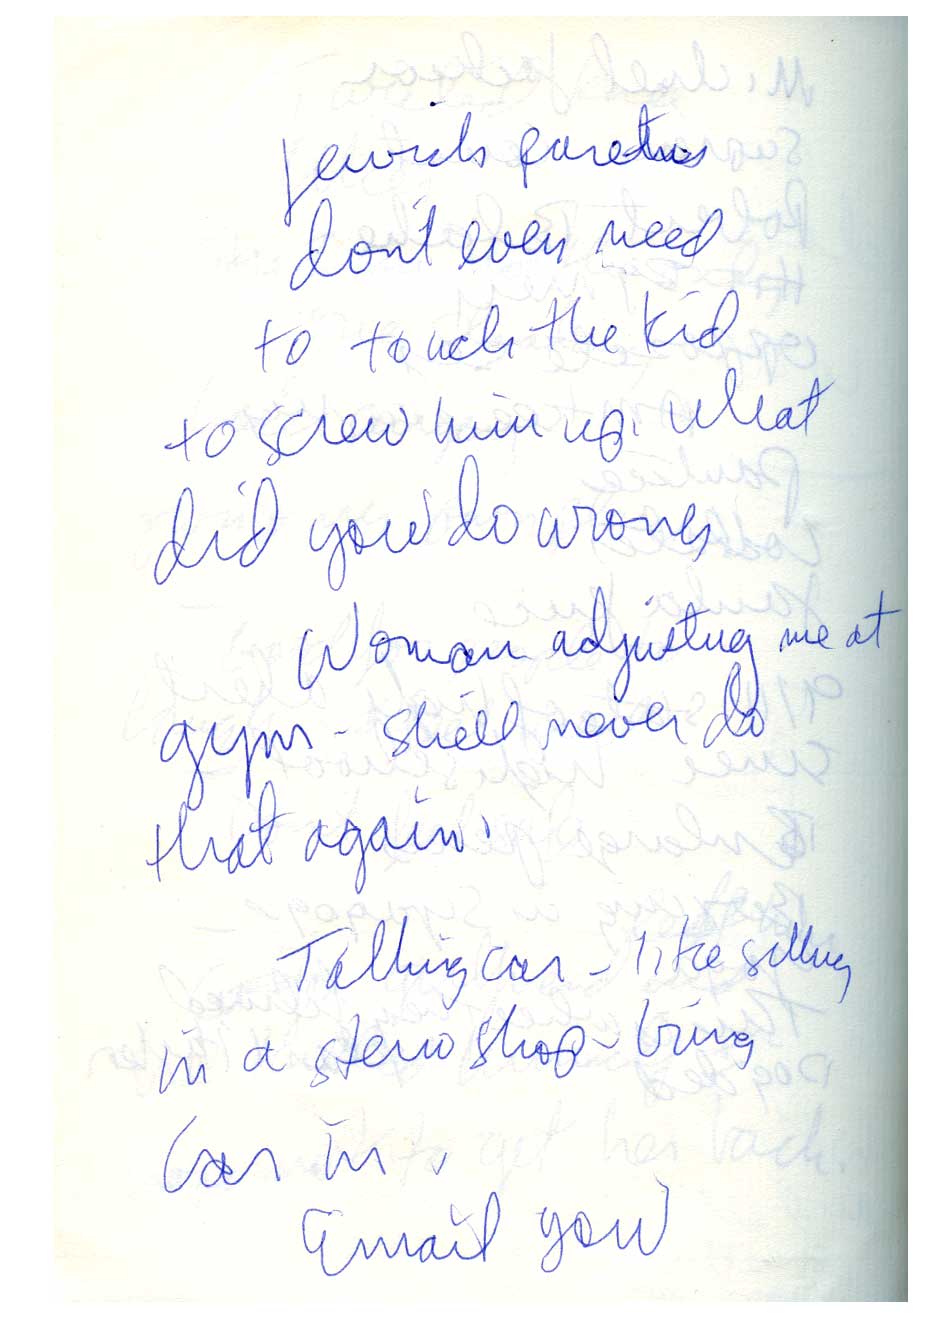 Jewish parents
don't even need
to touch the kid
to screw him up. what
did you do wrong
Woman adjusting me at
gym - she'll never do
that again.
Talking car - like selling
in a stereo shop - bring
car in.
Email you